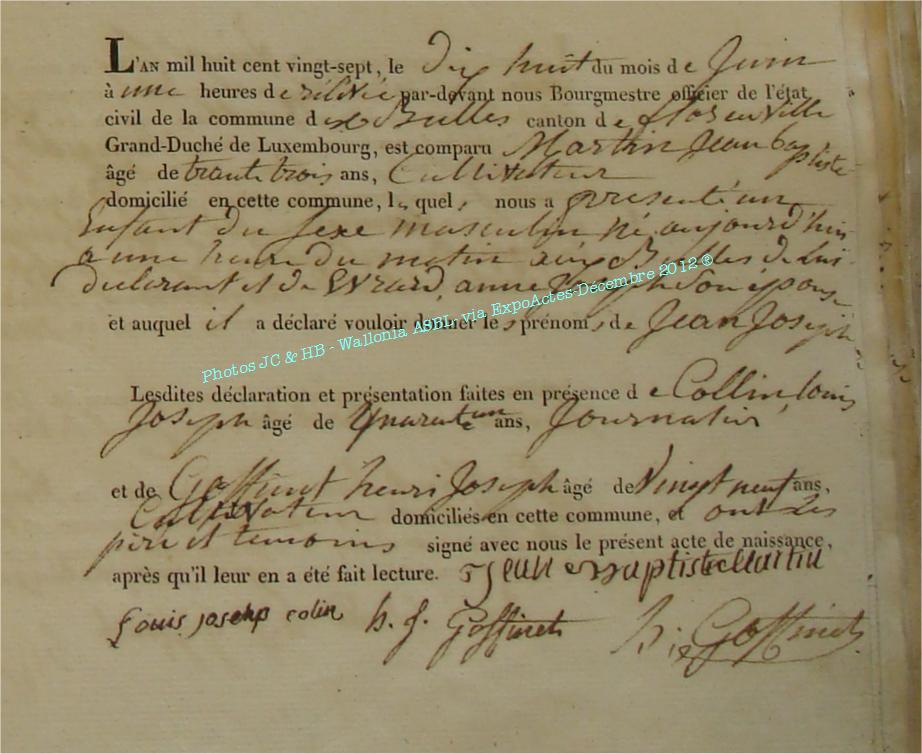 L'AN mil huit cent vingt-sept, le Dix huit du mois de Juin
à une heures de rélévée par-devant nous Bourgmestre officier de l'état
civil de la commune des Bulles canton de florenville
Grand-Duché de Luxembourg, est comparu Martin Jean baptiste
âgé de trante trois ans, Cultivateur
domicilié en cette commune, le quel nous a presenté un
Enfant du sexe masculin né aujourd'hui
a une heure du matin aux Bulles de Lui
declarant et de Evrard, anne Joseph son épouse
et auquel il a déclaré vouloir donner les prénoms de Jean Joseph
Lesdites déclaration et présentation faites en présence de Collin, louis
Joseph âgé de quarante un ans, Journalier
et de Goffinet henri Joseph âgé de Vingt neuf ans,
Cultivateur domiciliés en cette commune, et ont Les
père et temoins signé avec nous le présent acte de naissance,
après qu'il leur en a été fait lecture. Jean Baptiste Martin
Louis joseph colin h. j. Goffinet h. j. Goffinet
Photos JC & HB - Wallonia ASBL, via ExpoActes-Décembre 2012 ®